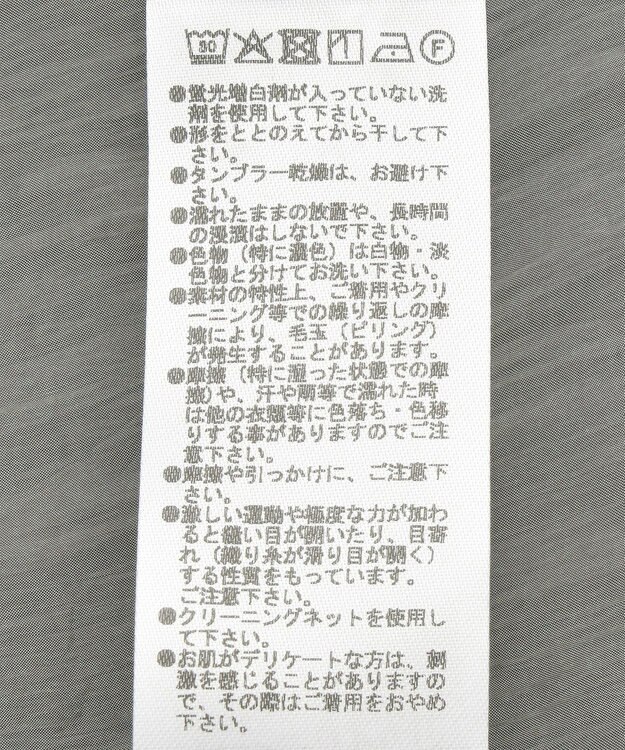 30 F
●蛍光増白剤が入っていない洗
剤を使用して下さい。
●形をととのえてから干して下
さい。
●タンブラー乾燥は、お避け下
さい。
●濡れたままの放置や、長時間
の浸漬はしないで下さい。
●色物（特に濃色）は白物・淡
色物と分けてお洗い下さい。
●素材の特性上、ご着用やクリ
ーニング等での繰り返しの摩
擦により、毛玉（ピリング）
が発生することがあります。
●摩擦（特に湿った状態での摩
擦）や、汗や雨等で濡れた時
は他の衣類等に色落ち・色移
りする事がありますのでご注
意下さい。
●摩擦や引っかけに、ご注意下
さい。
●激しい運動や極度な力が加わ
ると縫い目が開いたり、目寄
れ（織り糸が滑り目が開く）
する性質をもっています。
ご注意下さい。
●クリーニングネットを使用し
て下さい。
●お肌がデリケートな方は、刺
激を感じることがありますの
で、その際はご着用をおやめ
下さい。